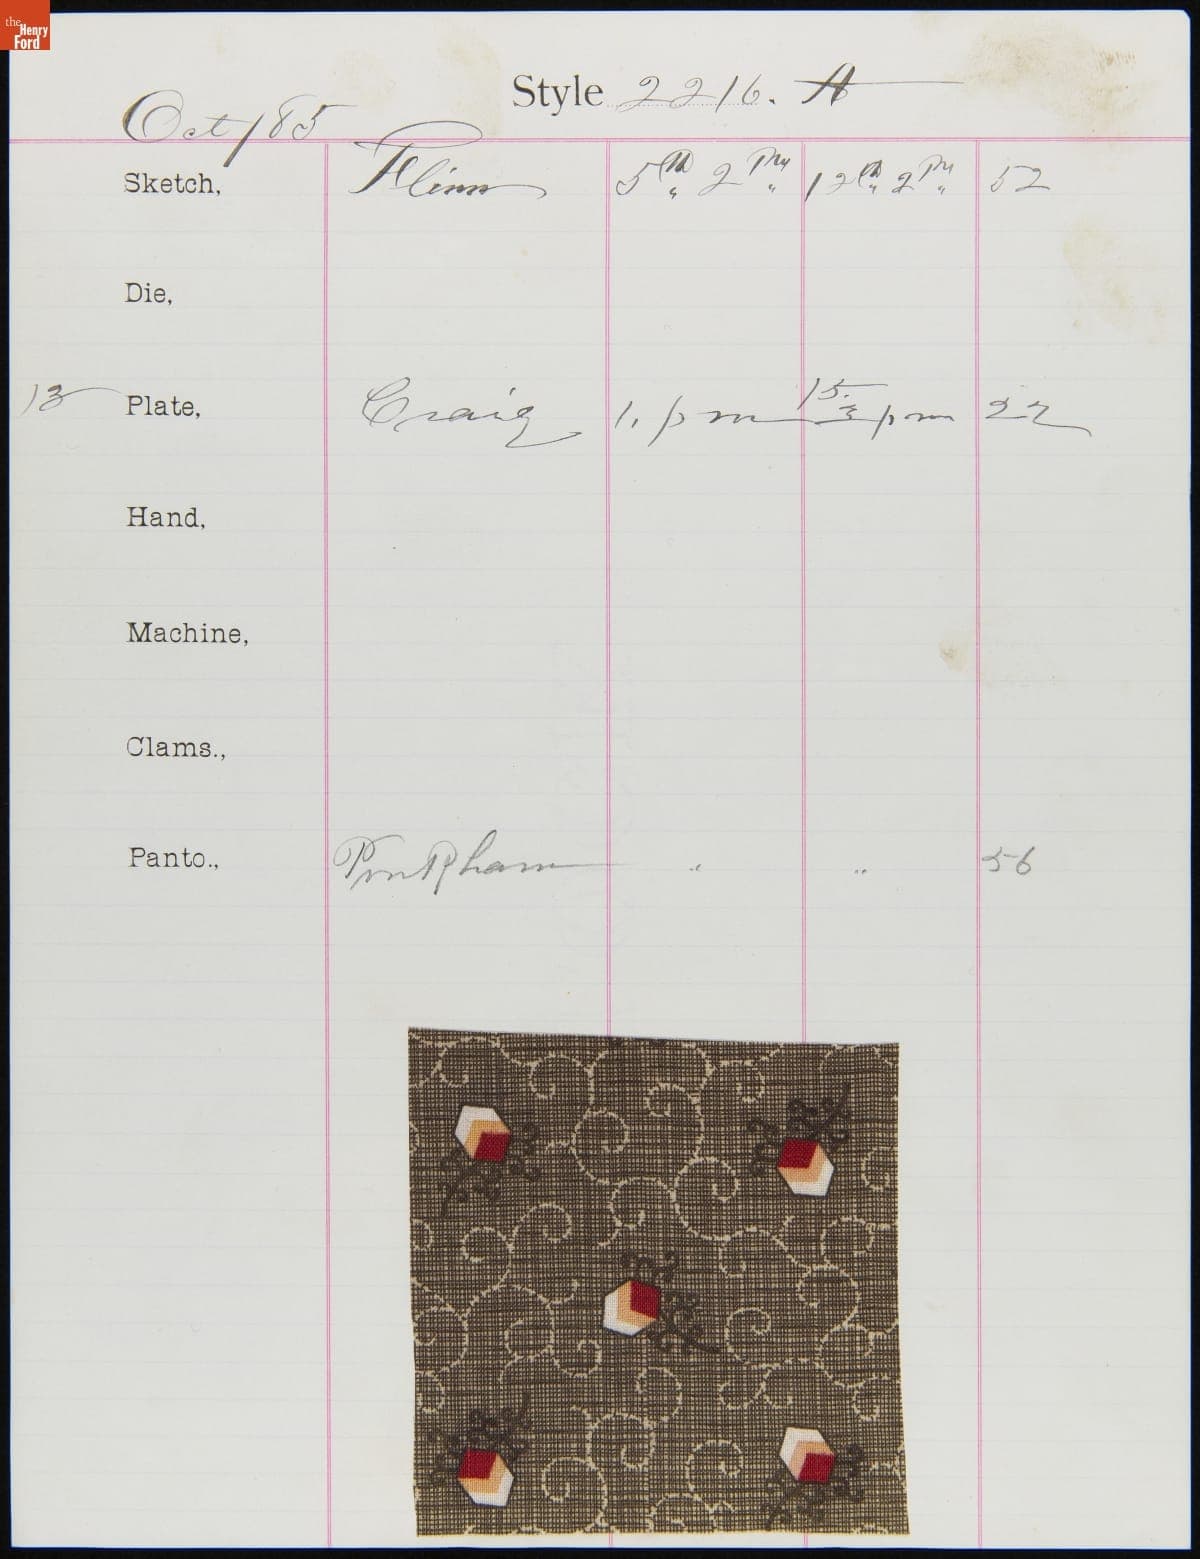 the
Henry
Ford
Style 2216. A
Oct / 85
Sketch, Flinn 5th 2 PM 12th 2 PM 52
Die,
13 Plate, Craig 1. pm 15. 3 pm 22
Hand,
Machine,
Clams.,
Panto., " " 56